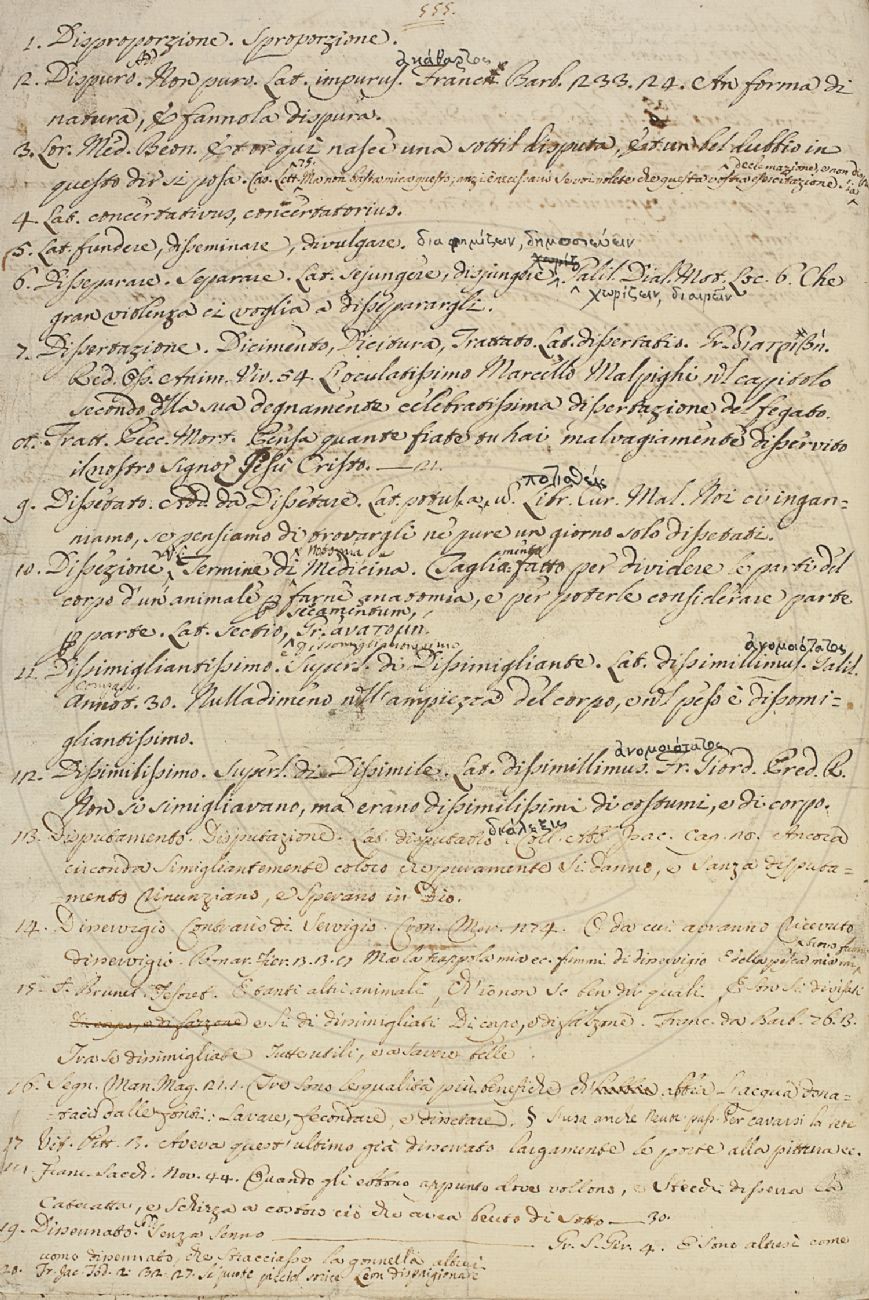 555.
1. Disproporzione. Sproporzione.
ἀκάθαρτος
2. Dispuro. Add. Non puro. Lat. impurus. Franc. Barb. 233. 24. In forma di
natura, fannola dispura.
3. Lor. Med. Beon. qui nasce una sottil disputa, un bel dubbio in
questo dir si posa. Lett. 75. Ma non basta mica questo, anzi è necessario se voi volete che questa vostra esercitazione sia declamazione, e non
4. Lat. concertativus, concertatorius.
5. Lat. fundere, disseminare, divulgare. διαφημίζειν, δημοσιεύειν
6. Disseparare. Separare. Lat. sejungere, disjungere. Galil. Dial. Mot. Loc. 6. Che
χωρίζειν, διαιρεῖν
gran violenza ci voglia a dissepararglі.
7. Dissertazione. Dicimento, Dicitura, Trattato. Lat. dissertatio. Gr. διατριβή.
Red. Oss. Anim. Viv. 54. L'oculatissimo Marcello Malpighi nel capitolo
secondo della sua degnamente celebratissima dissertazione del fegato.
8. Tratt. Pecc. Mort. Pensa quante fiate tu hai malvagiamente disservito
il nostro Signor Gesù Cristo. — 21.
ποτισθείς
9. Dissetato. Add. da Dissetare. Lat. potus, a, u. Libr. Cur. Mal. Noi ci ingan-
niamo, se pensiamo di trovargli nè pure un giorno solo dissetati.
10. Dissezione. Termine di Medicina. Tagliamento fatto per dividere le parti del
corpo d'un animale farne anatomia, e per poterle considerare parte
secamentum,
parte. Lat. sectio, Gr. ἀνατομή.
ἀνομοιότατος
11. Dissimigliantissimo. Superl. di Dissimigliante. Lat. dissimillimus. Galil.
Comp.
Annot. 30. Nulladimeno nell'ampiezza del corpo, e nel peso è dissomi-
gliantissimo.
ἀνομοιότατος
12. Dissimilissimo. Superl. di Dissimile. Lat. dissimillimus. Fr. Giord. Pred. R.
Non si simigliavano, ma erano dissimilissimi di costumi, e di corpo.
διάλεξις
13. Disputamento. Disputazione. Lat. disputatio Coll. Ab. Isac. cap. 10. Ancora
circonda simigliantemente coloro che puramente si danno, e sanza disputa-
mento rinunziano, e sperano in Dio.
14. Diservigio Contrario di Servigio. Cron. Mor. 174. E da cui avranno ricevuto
diservigio. Ma la trappola mia ec. fummi di diservigio E della pesca mia
15. Brunet. Tesoret. E tanti altri animali, Ch'io non so ben dir quali, E son sì divisati
e sì di dissimigliati Di corpo, e di fazzone. Franc. da Barb. 26. 13.
Tra se dissimigliate Tutte utili, e a savere belle.
16. Segn. Man. Mag. 21. 1. Tre sono le qualità più benefiche abbia l'acqua dona-
taci dalle fonti: Lavare, fecondare, e dissetare. § S'usa anche neut. pass. Per cavarsi la sete
17 Vit. Pitt. 17. Aveva quest'ultimo già disserrato largamente le porte alla pittura ec.
18. Franc. Sacch. Nov. 44. Quando gli ebbono appunto dove vollono, e Stecchi disserra la
cateratta, e schizza a costoro ciò che avea beuto di sotto — 30.
19. Dissennato. Senza senno — Gr. S. Gir. 4. E sono altresì come
uomo dissennato, che stracciasse la gonnella altrui
20. Fr. Jac. Tod. 2. 32. 27. Si puote picciol sorice Leon disprigionare